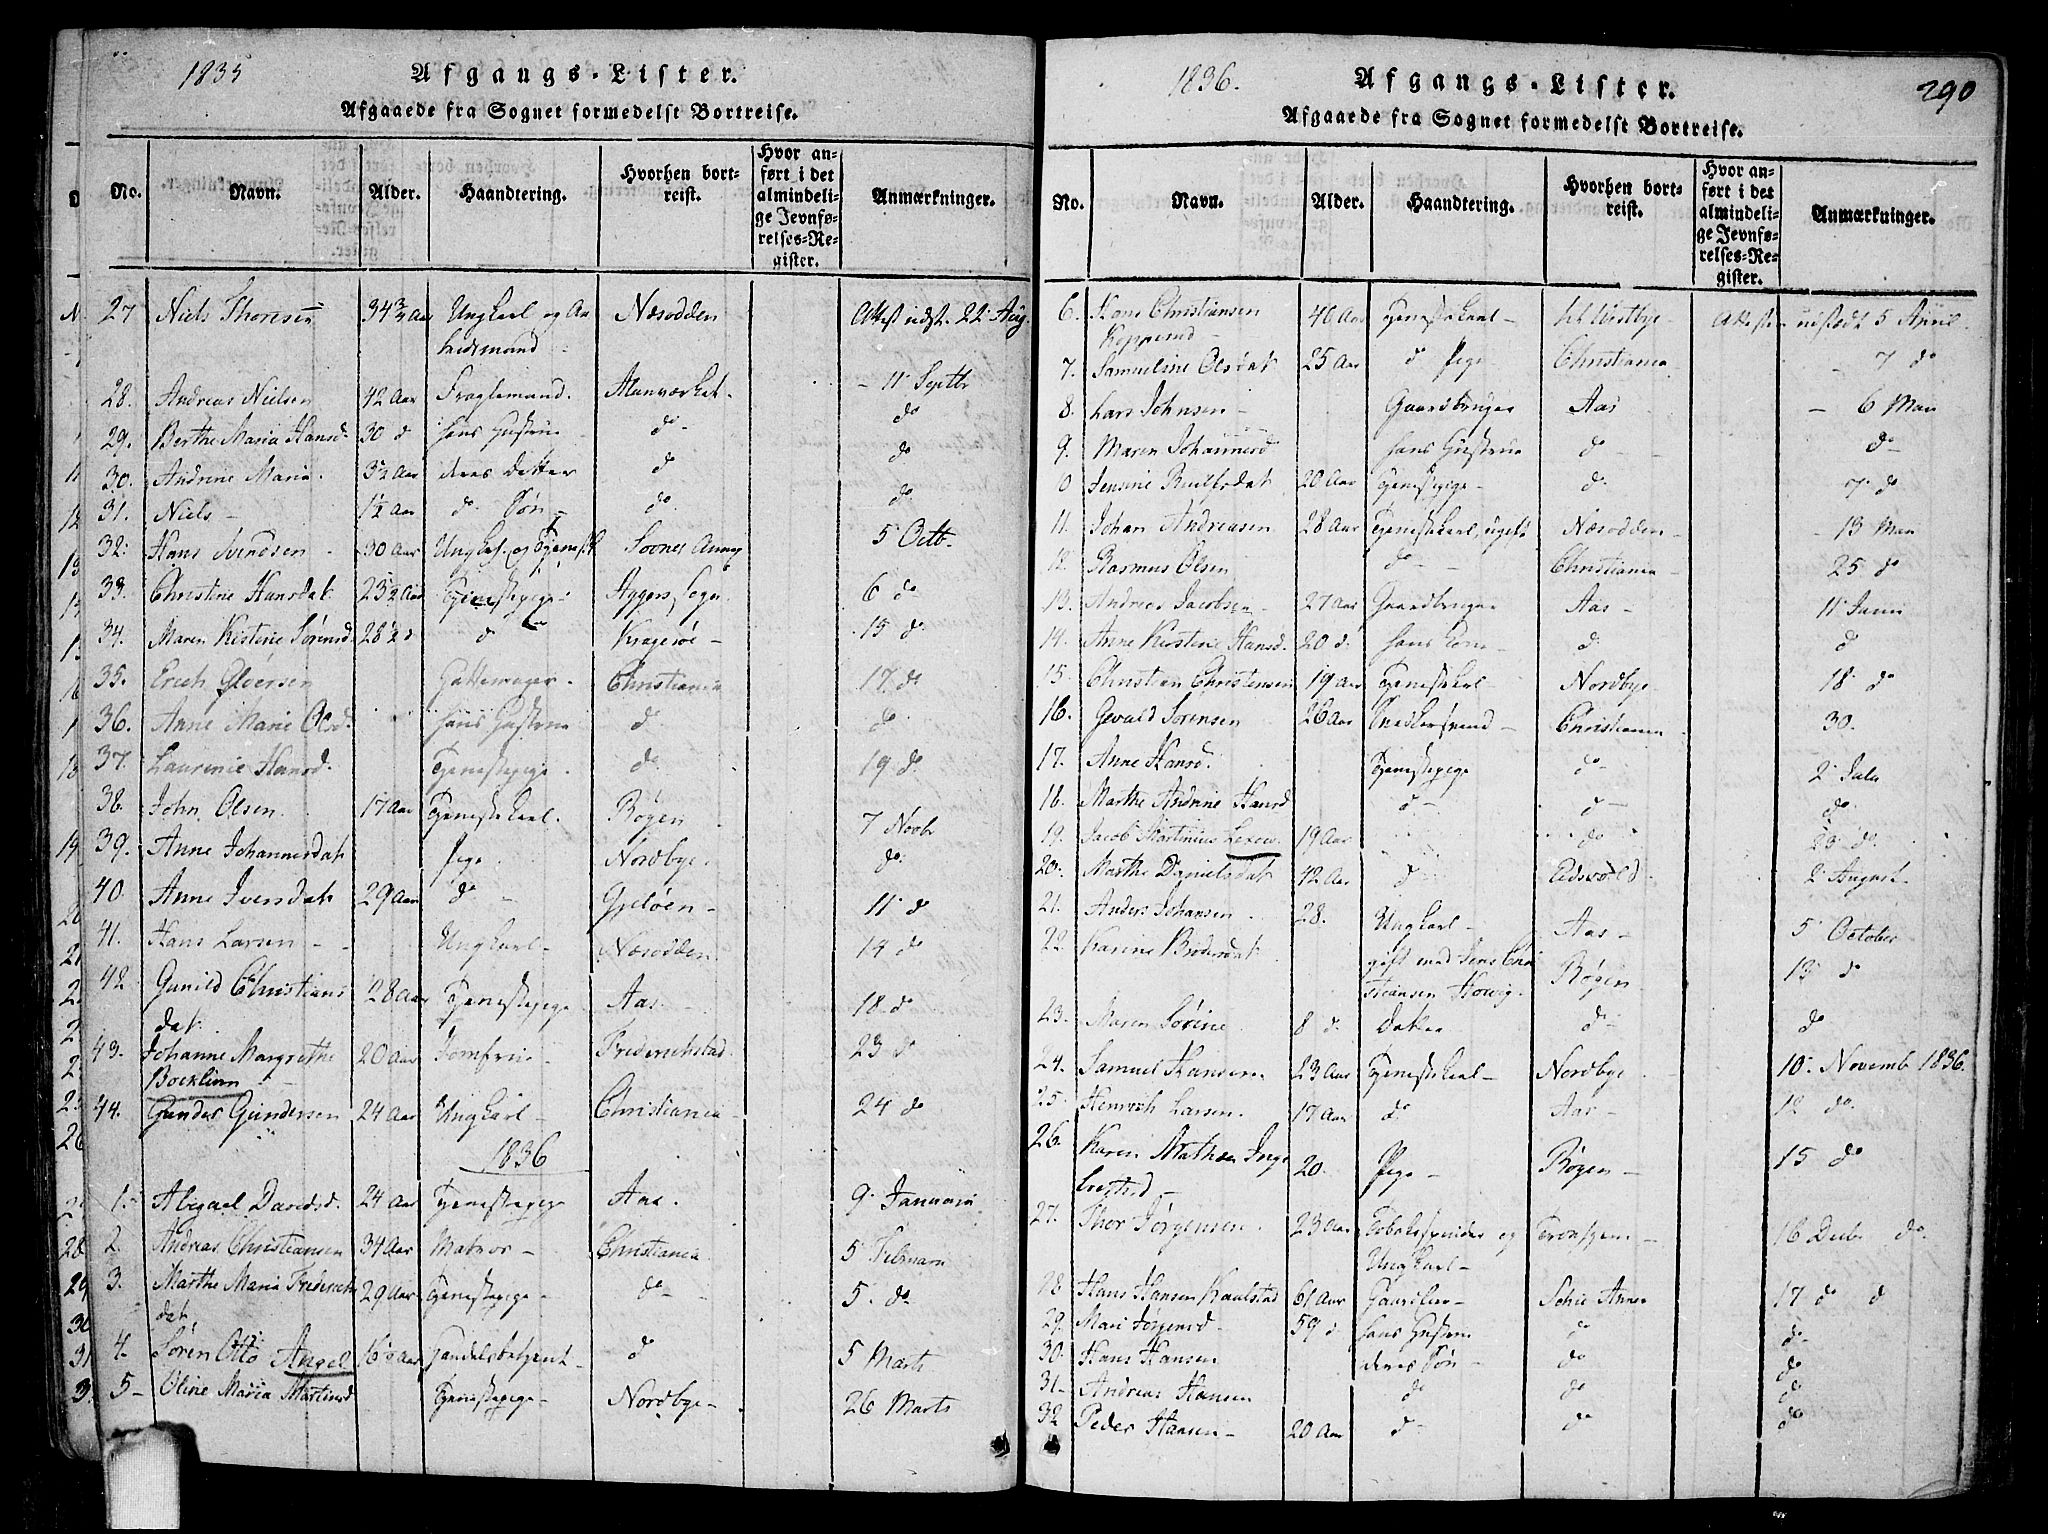 1835
Afgangs-Lister.
Afgaaede fra Sognet formedelst Bortreise.
No. Navn. Alder. Haandtering. Hvorhen bortreist. Hvor anført i det almindelige Jevnførelses-Register. Anmærkninger.
27 Niels Thoresen 34 3/4 Aar Ungkarl og Aa Næsodden Attest udst. 22 Aug.
beidsmand
28. Andreas Nielsen 42 Aar Alunværket. - 11 Septbr
29. Berthe Maria Hansd. 30 d hans Hustrue do do
30. Andrine Maria. 3½ Aar deres Datter d do
31. Niels - 1½ Aar do Søn - do do
32. Hans Svendsen 30 Aar Soones Annex 5 Octb.
33. Christine Hansdat. 23½ Aar Tjenestepige Aggers Sogn. 6 do
34. Maren Kistine Sørensd. 28½ d d Kragerøe - 15 do
35. Erich Christiania 17 do
36. Anne Marie Olsd. hans Hustrue d. do
37. Laurenie Hansd. Tjenestepige. do 19 do
38. John Olsen 17 Aar Tjenestekarl. Røgen 7 Novbr
39. Anne Johannesdat. Pige. Nordbye. do
40. Anne Iversdat. 29 Aar do Gjeløen - 11 do
41. Hans Larsen - Ungkarl - Næsodden. 14 do
42 Gunild Christians 28 Aar Tjenestepige Aas. 18 do
dat.
43. Johanne Margrethe 20 Aar Jomfrue Friderichstad. 23 do
Bocklum
44. Gunder Gundersen 24 Aar Ungkarl - Christiania 24 do
1836
1. Abigael Davidsd. 24 Aar Tjenestepige Aas. 9. Januari
2. Andreas Christiansen 34 Aar Matros - Christiania 5 Februari
3. Marthe Maria Frederichs 29 Aar Tjenestepige - do 5. do
dat.
4. Søren Otto Angel 16 Aar Handelsbetjent - d 5 Marts
5 - Oline Maria Martinsd Tjenestepige - Nordbye - 26 Marts
1836.
Afgangs-Lister.
290
Afgaaede fra Sognet formedelst Bortreise.
No. Navn. Alder. Haandtering. Hvorhen bortreist. Hvor anført i det almindelige Jevnførelses-Register. Anmærkninger.
6. Hans Christiansen 40 Aar Tjenestekarl - til Westbye Attest udstædt 5 April.
Kopperud
7. Samueline Olsdat. 25 Aar d Pige Christiania - 7 do
8. Lars Johnsen - Gaardbruger Aas - 6 Mai
9. Maren Johannesd hans Hustrue do do
0 Jensine 20 Aar Tjenestepige - d. 7 do
11. Johan Andreasen 28 Aar Tjenestekarl, ugift Næsodden - - 13 Mai
12. Rasmus Olsen do - Christiania - 25 do
13. Andreas Jacobsen - 27 Aar Gaardbruger Aas - 11 Juni
14. Anne Kirstine Hansd. 20 d. hans Kone d. d
15. Christian Christensen 19 Aar Tjenestekarl - Nordbye. 18 do
16. Gevald Sørensen 26 Aar Snedkersvend Christiania 30.
17. Anne Hansd. Tjenestepige do 2 Julii
18. Marthe Andrine Hansd d - d do
19. Jacob Martinius 19 Aar do 23 do
20. Marthe Danielsdat. 12 Aar d Eidsvold. 2 August
21. Anders Johansen 28. Ungkarl - Aas - 5 October
22. Karine gift med Jens Chri Røgen. 13 do
stiansen
23. Maren Sørine 8 d. Datter d - do
24. Samuel Hansen 23 Aar Tjenestekarl - Nordbye 10. Novemb 1836.
25. Henrich Larsen. 17 Aar do Aas - 12 do.
26. Karen Mathea Inge 20. Pige - Røgen - 15 do
brethsd
27. Thor Jørgensen. 23 Aar Tobaksspinder og 16 Decbr do
Ungkarl -
28 Hans Hansen Kaalstad 61 Aar Schie Annex 17 d d
29. Mari Jørgensd 59 d hans Hustrue do do
30. Hans Hansen deres Søn - do do
31 - Andreas Hansen do do do
32 Peder Hansen - 20 Aar d - do do